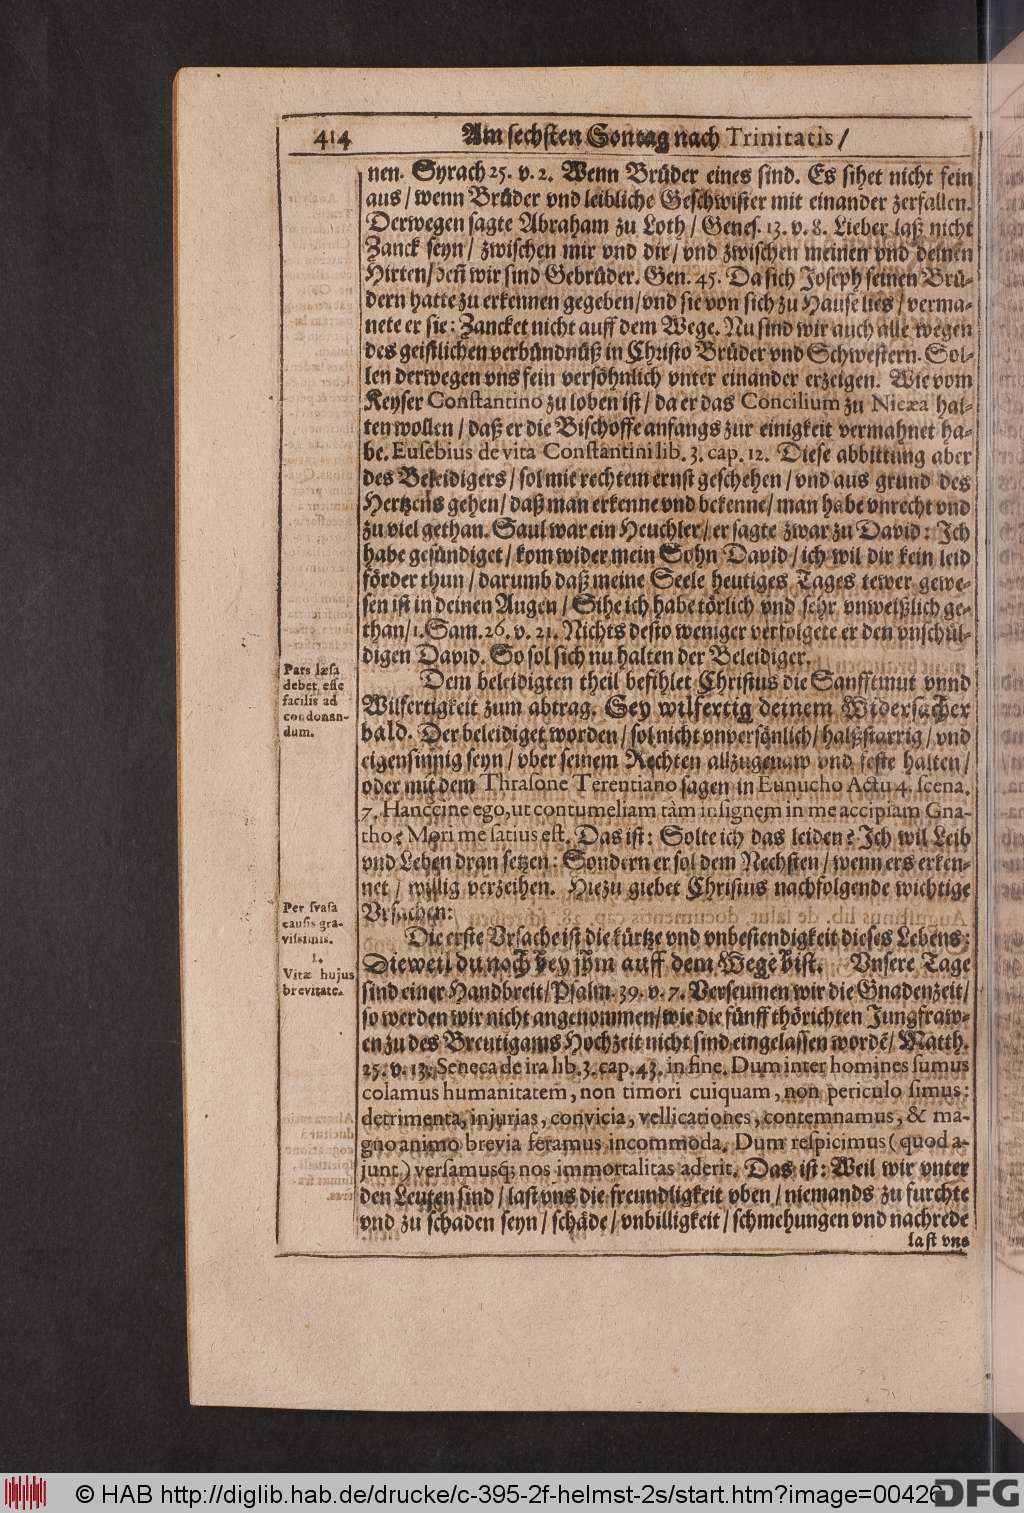 414 Am sechsten Sontag nach Trinitatis /
nen. Syrach 25. v. 2. Wenn Brüder eines sind. Es sihet nicht fein
aus / wenn Brüder vnd leibliche Geschwister mit einander zerfallen.
Derwegen sagte Abraham zu Loth / Genes. 13. v. 8. Lieber laß nicht
Zanck seyn / zwischen mir vnd dir / vnd zwischen meinen vnd deinen
Hirten / deñ wir sind Gebrüder. Gen. 45. Da sich Joseph seinen Brü-
dern hatte zu erkennen gegeben / vnd sie von sich zu Hause lies / verma-
nete er sie: Zancket nicht auff dem Wege. Nu sind wir auch alle wegen
des geistlichen verbündnüß in Christo Brüder vnd Schwestern. Sol-
len derwegen vns fein versöhnlich vnter einander erzeigen. Wie vom
Keyser Constantino zu loben ist / da er das Concilium zu Nicæa hal-
ten wollen / daß er die Bischoffe anfangs zur einigkeit vermahnet ha-
be. Eusebius de vita Constantini lib. 3. cap. 12. Diese abbittung aber
des Beleidigers / sol mit rechtem ernst geschehen / vnd aus grund des
Hertzens gehen / daß man erkenne vnd bekenne / man habe vnrecht vnd
zu viel gethan. Saul war ein Heuchler / er sagte zwar zu David: Ich
habe gesündiget / kom wider mein Sohn David / ich wil dir kein leid
förder thun / darumb daß meine Seele heutiges Tages tewer gewe-
sen ist in deinen Augen / Sihe ich habe törlich vnd sehr vnweißlich ge-
than / 1. Sam. 26. v. 21. Nichts desto weniger verfolgete er den vnschül-
digen David. So sol sich nu halten der Beleidiger.
Pars læsa
debet esse
facilis ad
condonan-
dum.
Dem beleidigten theil befihlet Christus die Sanfftmut vnnd
Wilfertigkeit zum abtrag. Sey wilfertig deinem Widersacher
bald. Der beleidiget worden / sol nicht vnversönlich / halßstarrig / vnd
eigensinnig seyn / vber seinem Rechten allzugenaw vnd feste halten /
oder mit dem Thrasone Terentiano sagen in Eunucho Actu 4. scena.
7. Hanccine ego, ut contumeliam tàm insignem in me accipiam Gna-
tho? Mori me satius est. Das ist: Solte ich das leiden? Ich wil Leib
vnd Leben dran setzen: Sondern er sol dem Nechsten / wenn ers erken-
net / willig verzeihen. Hiezu giebet Christus nachfolgende wichtige
Vrsachen:
Per svasa
causis gra-
vissimis.
1.
Vitæ hujus
brevitate.
Die erste Vrsache ist die kürtze vnd vnbestendigkeit dieses Lebens;
Dieweil du noch bey jhm auff dem Wege bist. Vnsere Tage
sind einer Handbreit / Psalm. 39. v. 7. Verseumen wir die Gnadenzeit /
so werden wir nicht angenommen / wie die fünff thörichten Jungfraw-
en zu des Breutigams Hochzeit nicht sind eingelassen wordẽ / Matth.
25. v. 13. Seneca de ira lib. 3. cap. 43. in fine. Dum inter homines sumus
colamus humanitatem, non timori cuiquam, non periculo simus:
detrimenta, injurias, convicia, vellicationes, contemnamus, & ma-
gno animo brevia feramus incommoda. Dum respicimus (quod a-
junt) versamusq; nos immortalitas aderit. Das ist: Weil wir vnter
den Leuten sind / last vns die freundligkeit vben / niemands zu furchte
vnd zu schaden seyn / schäde / vnbilligkeit / schmehungen vnd nachrede
last vns
© HAB http://diglib.hab.de/drucke/c-395-2f-helmst-2s/start.htm?image=00426
DFG